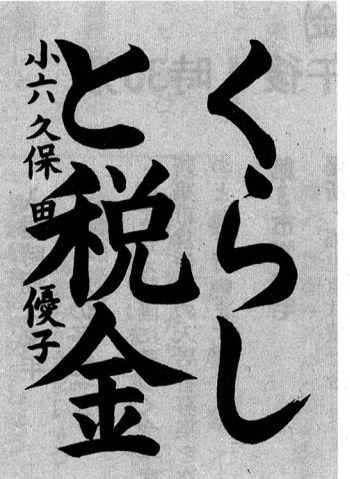 くらし
と税金
小六 久保田 優子